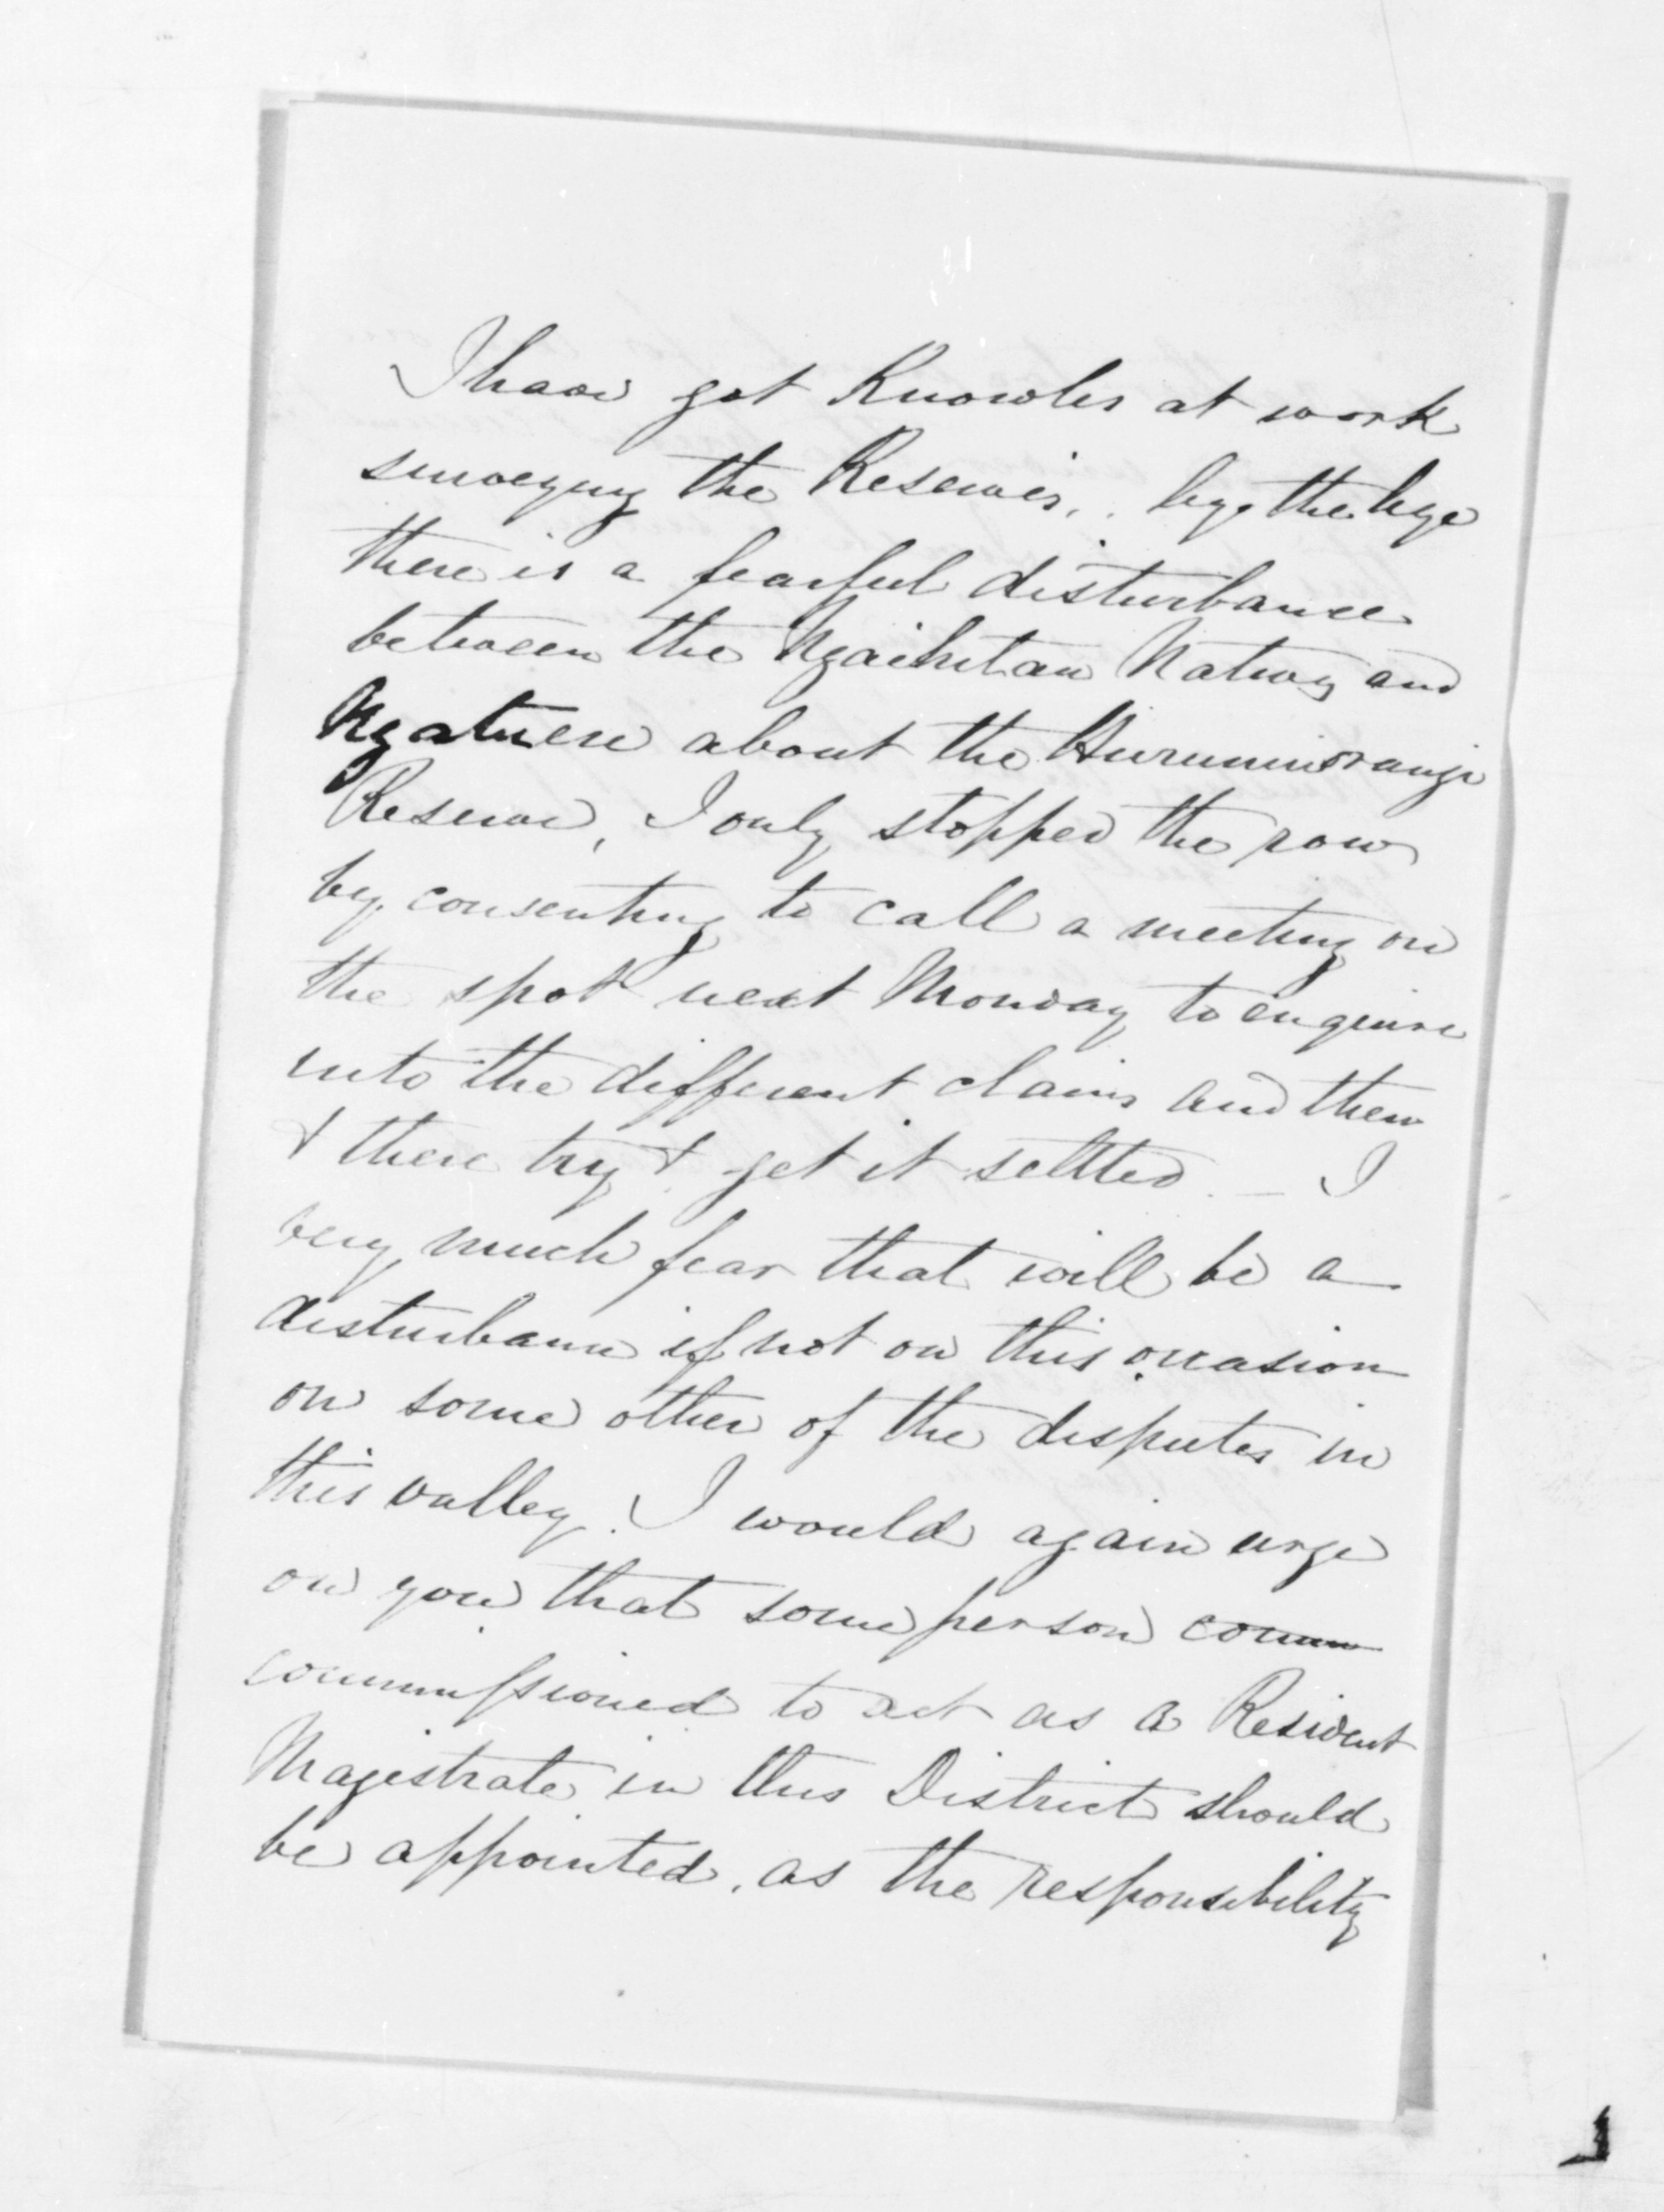 I have got Knowles at work
surveying the Reserves, . by, the bye
there is a fearful disturbance
between the Ngaihitau Natives and
Ngatuere about the Huruniuorangi
Reserve, I only stopped the row
by consenting to call a meeting on
the spot next Monday to enquire
into the different claims and then
& there try & get it settled. – I
very much fear that will be a
disturbance if not on this occasion
on some other of the disputes in
this valley. I would again urge
on you that some person comm
commissioned to act as a Resident
Magistrate in this District should
be appointed, as the responsibility